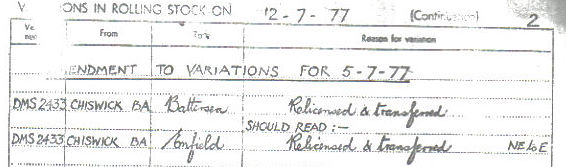 ONS IN ROLLING STOCK ON 12-7-77 (Continuation) 2
From To Reason for variation
ENDMENT TO VARIATIONS FOR 5-7-77
DMS 2433 CHISWICK BA Battersea Relicensed & transferred
SHOULD READ :-
DMS 2433 CHISWICK BA Enfield Relicensed & transferred NE to E